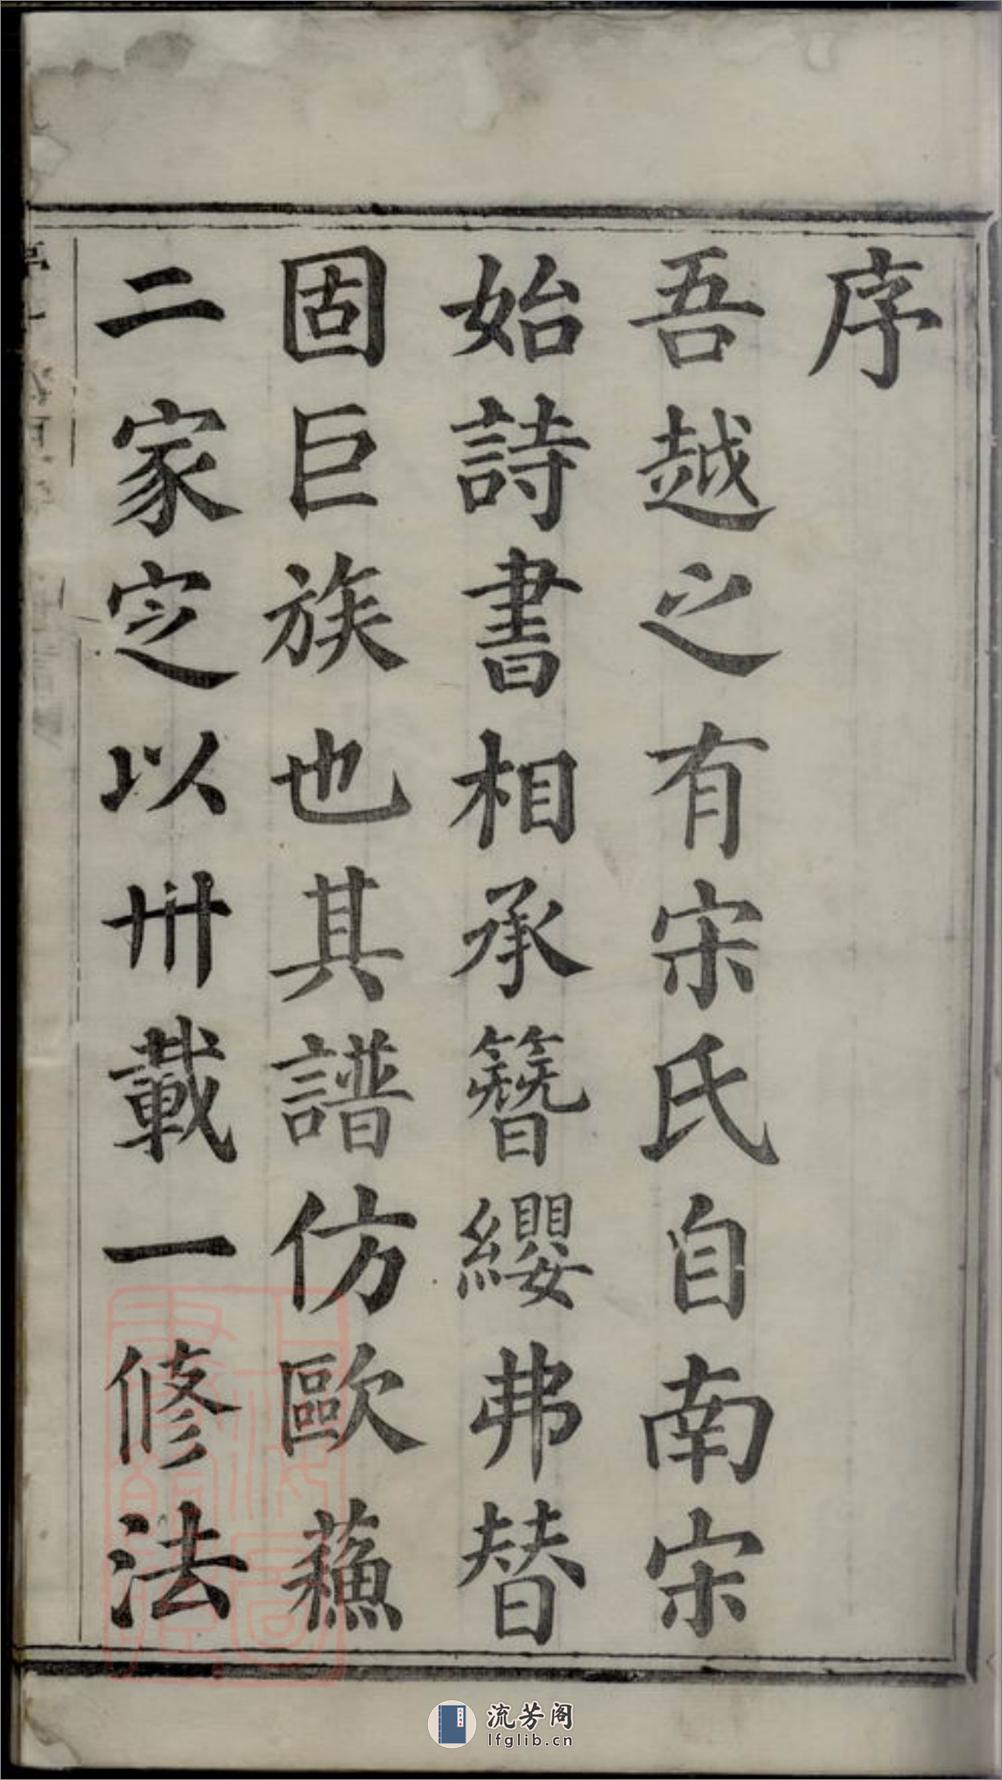 序
吾越之有宋氏自南宋
始詩書相承簪纓弗替
固巨族也其譜仿歐蘓
二家定以卅載一修法
流芳阁
lfglib.cn